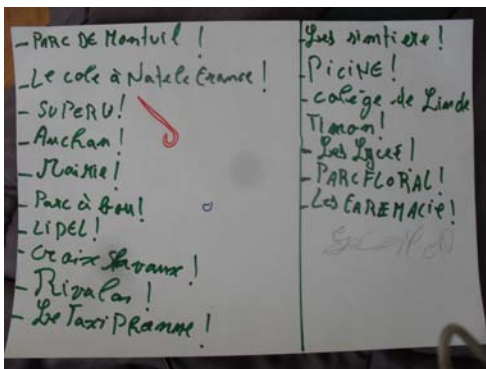 - PARC DE Montuil !
- Le cole à Natele Erance !
- SUPERU!
- Auchan!
- Mairie!
- Parc à bou!
- LIPEL!
- Craix Shavaux!
- Rivalan!
- Le Taxi PhRanne!
- Les simtiere!
- PiciNE!
- colège de Linde
Timon!
- Les Lycée!
- PARC FLORIAL!
- Les EAREMACie!